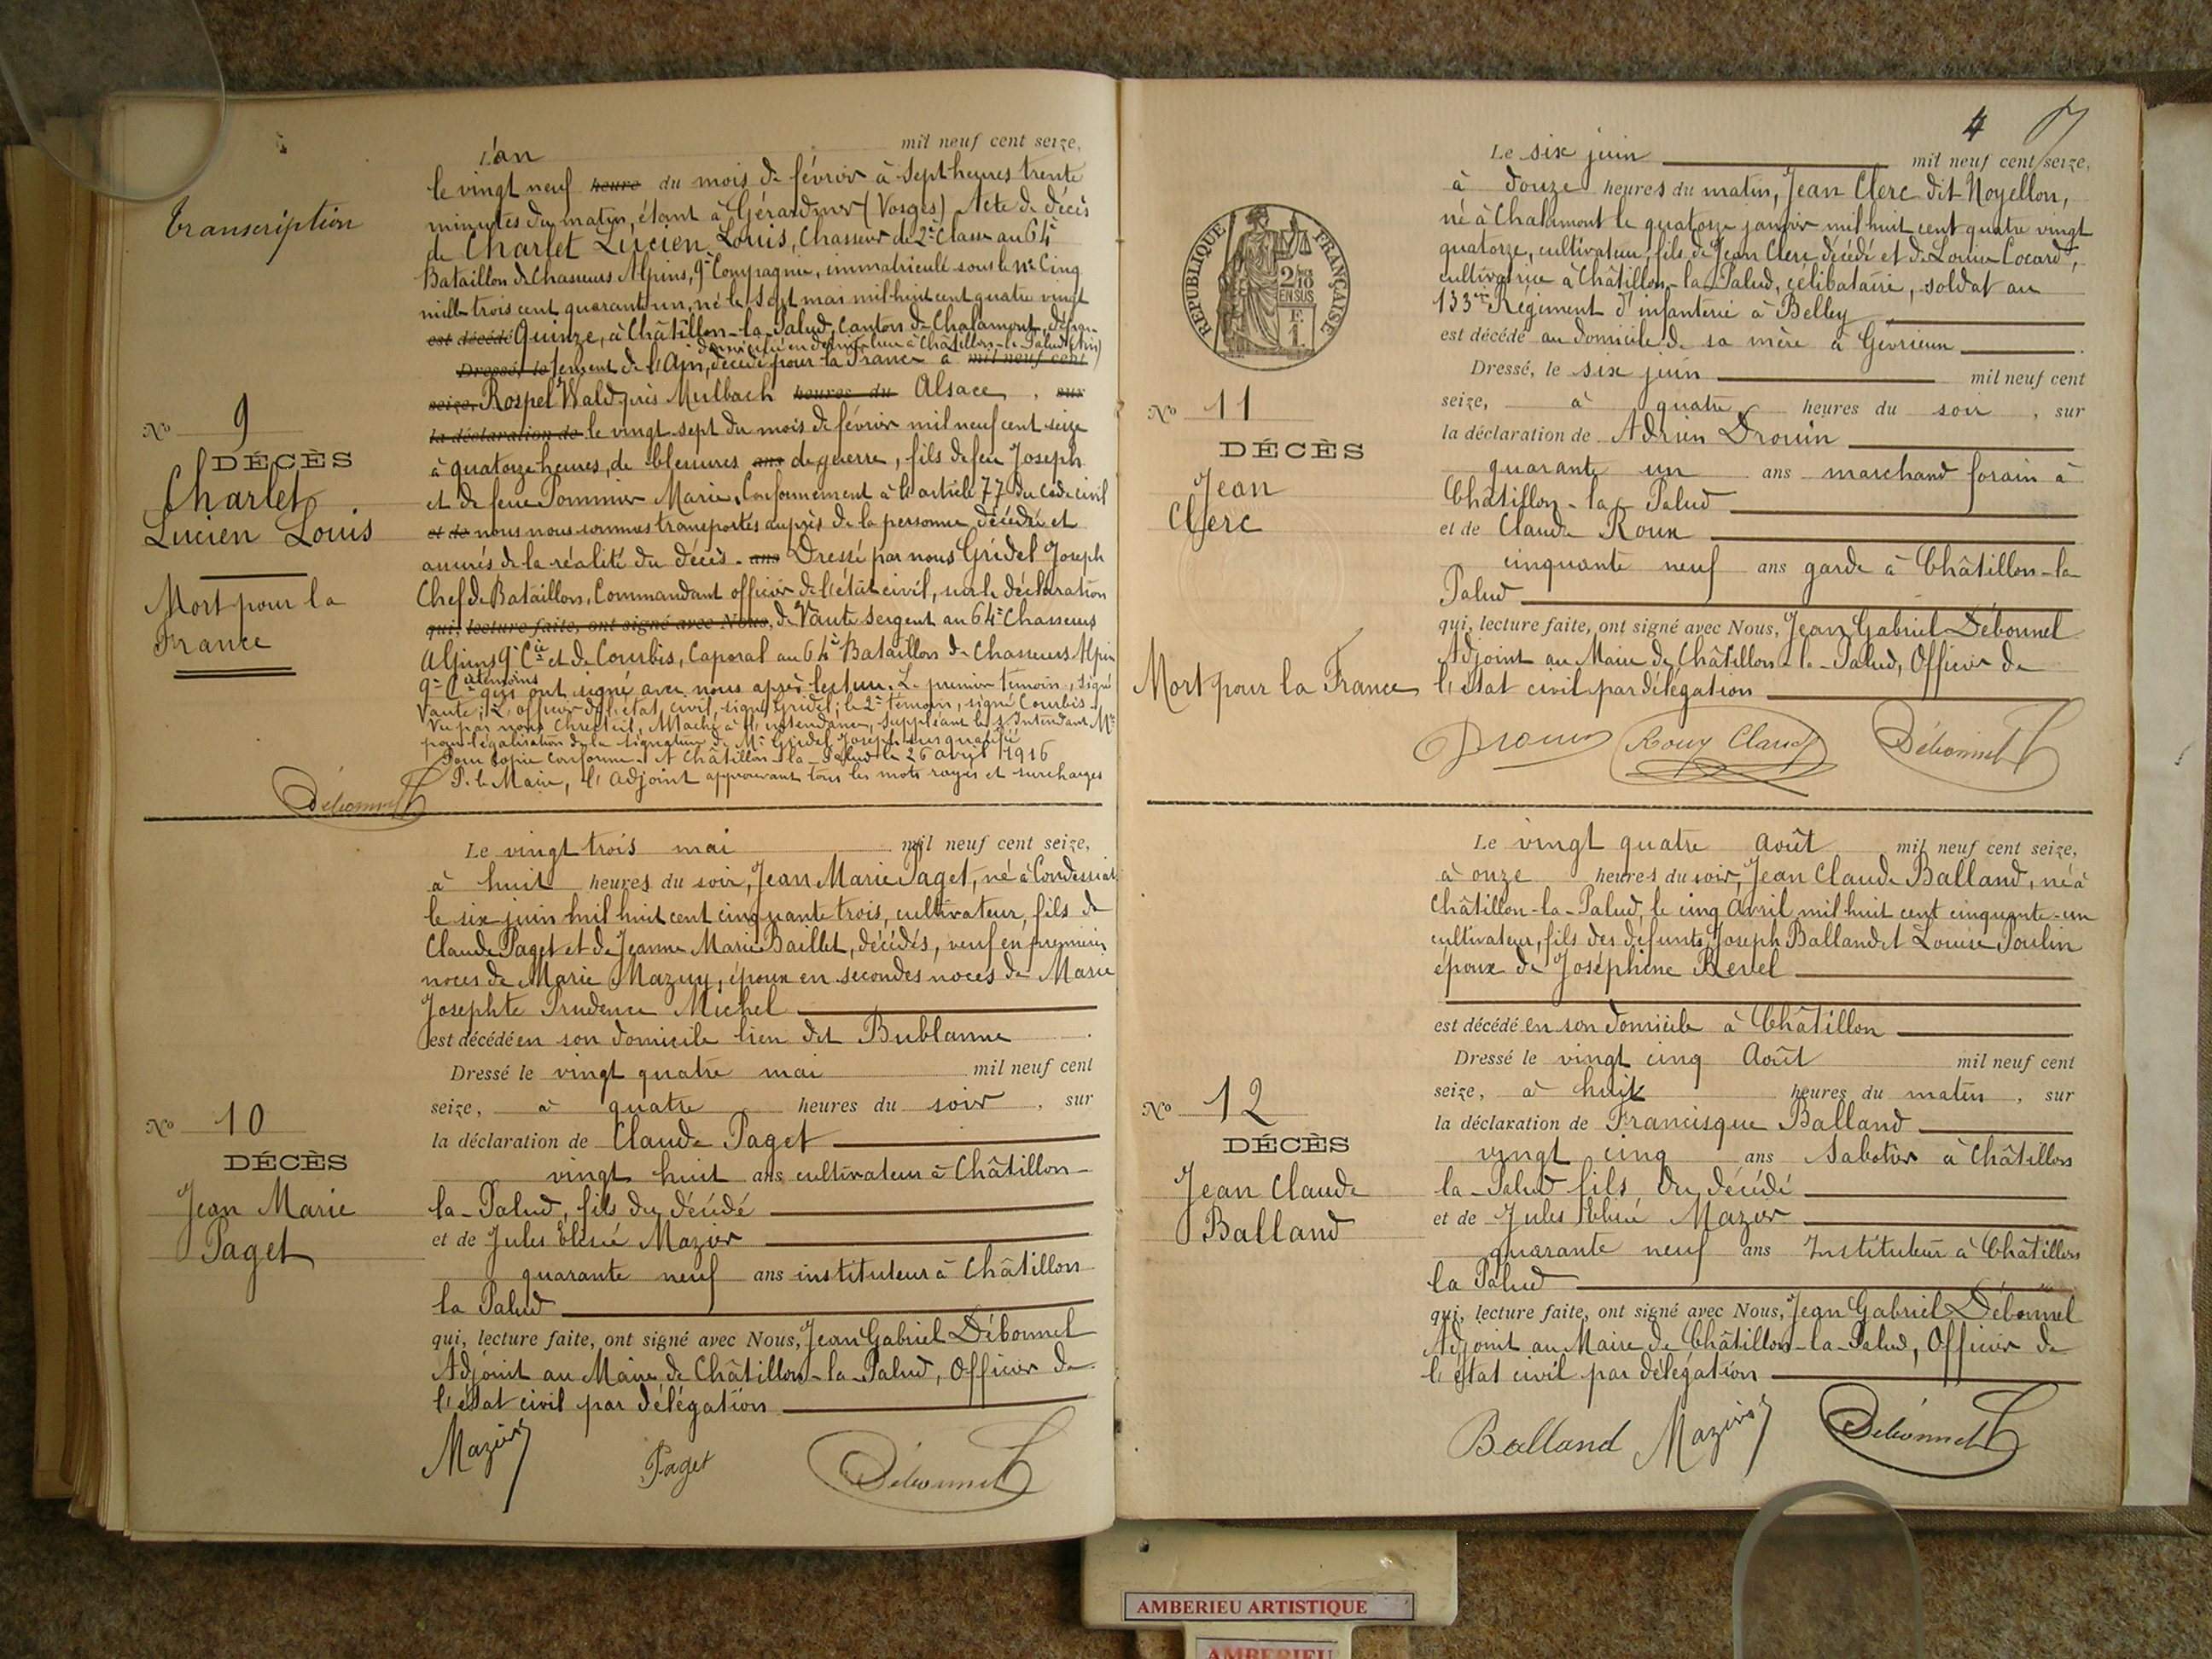 Transcription
L'an mil neuf cent seize,
le vingt neuf heure du mois de février à sept heures trente
minutes du matin, étant à Gérardmer (Vosges) Acte de décès
de Charlet Lucien Louis, Chasseur de 2e Classe au 64e
Bataillon de Chasseurs Alpins, 9e Compagnie, immatriculé sous le No Cinq
mille trois cent quarante un, né le Sept mai mil huit cent quatre vingt
est décédé Quinze, à Châtillon-la-Palud, Canton de Chalamont, dépar-
domicilié en dernier lieu à Châtillon-la-Palud (Ain)
Dressé, le tement de l'Ain, décédé pour la France à mil neuf cent
seize, Rospel Wald près Mulbach heures du Alsace, sur
la déclaration de le vingt sept du mois de février mil neuf cent seize
à quatorze heures, de blessures ans de guerre, fils de feu Joseph
et de feue Pommier Marie. Conformément à l'article 77 du Code civil
et de nous nous sommes transportés auprès de la personne décédée et
assurés de la réalité du décès. ans Dressé par nous Gridel Joseph
Chef de Bataillon, Commandant officier de l'état civil, sur la déclaration
qui, lecture faite, ont signé avec Nous, de Vaute Sergent au 64e Chasseurs
Alpins 9e Cie et de Courbis, Caporal au 64e Bataillon de Chasseurs Alpins
9e Cie témoins qui ont signé avec nous après lecture. Le premier témoin, signé
Vaute; L'officier de l'état civil, signé Gridel; le 2e témoin, signé Courbis.
Vu par nous Attaché à l'intendance, Suppléant le s/Intendant Mre
pour légalisation de la signature de Mr Gridel Joseph susqualifié
Pour copie conforme. A Châtillon-la-Palud le 26 avril 1916
P. le Maire, l'Adjoint approuvant tous les mots rayés et surchargés
Débonnel
No 9
DÉCÈS
Charlet
Lucien Louis
Mort pour la
France
Le vingt trois mai mil neuf cent seize,
à huit heures du soir, Jean Marie Paget, né à Condeissiat
le six juin mil huit cent cinquante trois, cultivateur, fils de
Claude Paget et de Jeanne Marie Baillet, décédés, veuf en premières
noces de Marie Mazuy, époux en secondes noces de Marie
Josephte Prudence Michel
est décédé en son domicile lieu dit Bublanne
Dressé le vingt quatre mai mil neuf cent
seize, à quatre heures du soir, sur
la déclaration de Claude Paget
vingt huit ans cultivateur à Châtillon-
la-Palud, fils du décédé
et de Jules Elisée Mazier
quarante neuf ans instituteur à Châtillon
la Palud
qui, lecture faite, ont signé avec Nous, Jean Gabriel Débonnel
Adjoint au Maire de Châtillon-la-Palud, Officier de
l'état civil par délégation
Mazier Paget Débonnel
No 10
DÉCÈS
Jean Marie
Paget
4
RÉPUBLIQUE FRANÇAISE
2/10
EN SUS
Le six juin mil neuf cent seize,
à douze heures du matin, Jean Clerc dit Noyellon,
né à Chalamont le quatorze janvier mil huit cent quatre vingt
quatorze, cultivateur, fils de Jean Clerc décédé et de Louise Cocard,
cultivatrice à Châtillon-la-Palud, célibataire, soldat au
133e Régiment d'infanterie à Belley
est décédé au domicile de sa mère à Gévrieux
Dressé, le six juin mil neuf cent
seize, à quatre heures du soir, sur
la déclaration de Adrien Drouin
quarante un ans marchand forain à
Châtillon-la-Palud
et de Claude Roux
cinquante neuf ans garde à Châtillon-la
Palud
qui, lecture faite, ont signé avec Nous, Jean Gabriel Débonnel
Adjoint au Maire de Châtillon-la-Palud, Officier de
l'état civil par délégation
Drouin Roux Claude Débonnel
No 11
DÉCÈS
Jean
Clerc
Mort pour la France
Le vingt quatre Août mil neuf cent seize,
à onze heures du soir, Jean Claude Balland, né à
Châtillon-la-Palud, le cinq Avril mil huit cent cinquante-un
cultivateur, fils des défunts Joseph Balland et Louise Poulin
époux de Joséphine Revel
est décédé en son domicile à Châtillon
Dressé le vingt cinq Août mil neuf cent
seize, à huit heures du matin, sur
la déclaration de Francisque Balland
vingt cinq ans Sabotier à Châtillon
la-Palud fils du décédé
et de Jules Elisée Mazier
quarante neuf ans Instituteur à Châtillon
la Palud
qui, lecture faite, ont signé avec Nous, Jean Gabriel Débonnel
Adjoint au Maire de Châtillon-la-Palud, Officier de
l'état civil par délégation
Balland Mazier Débonnel
No 12
DÉCÈS
Jean Claude
Balland
AMBERIEU ARTISTIQUE
AMBERIEU